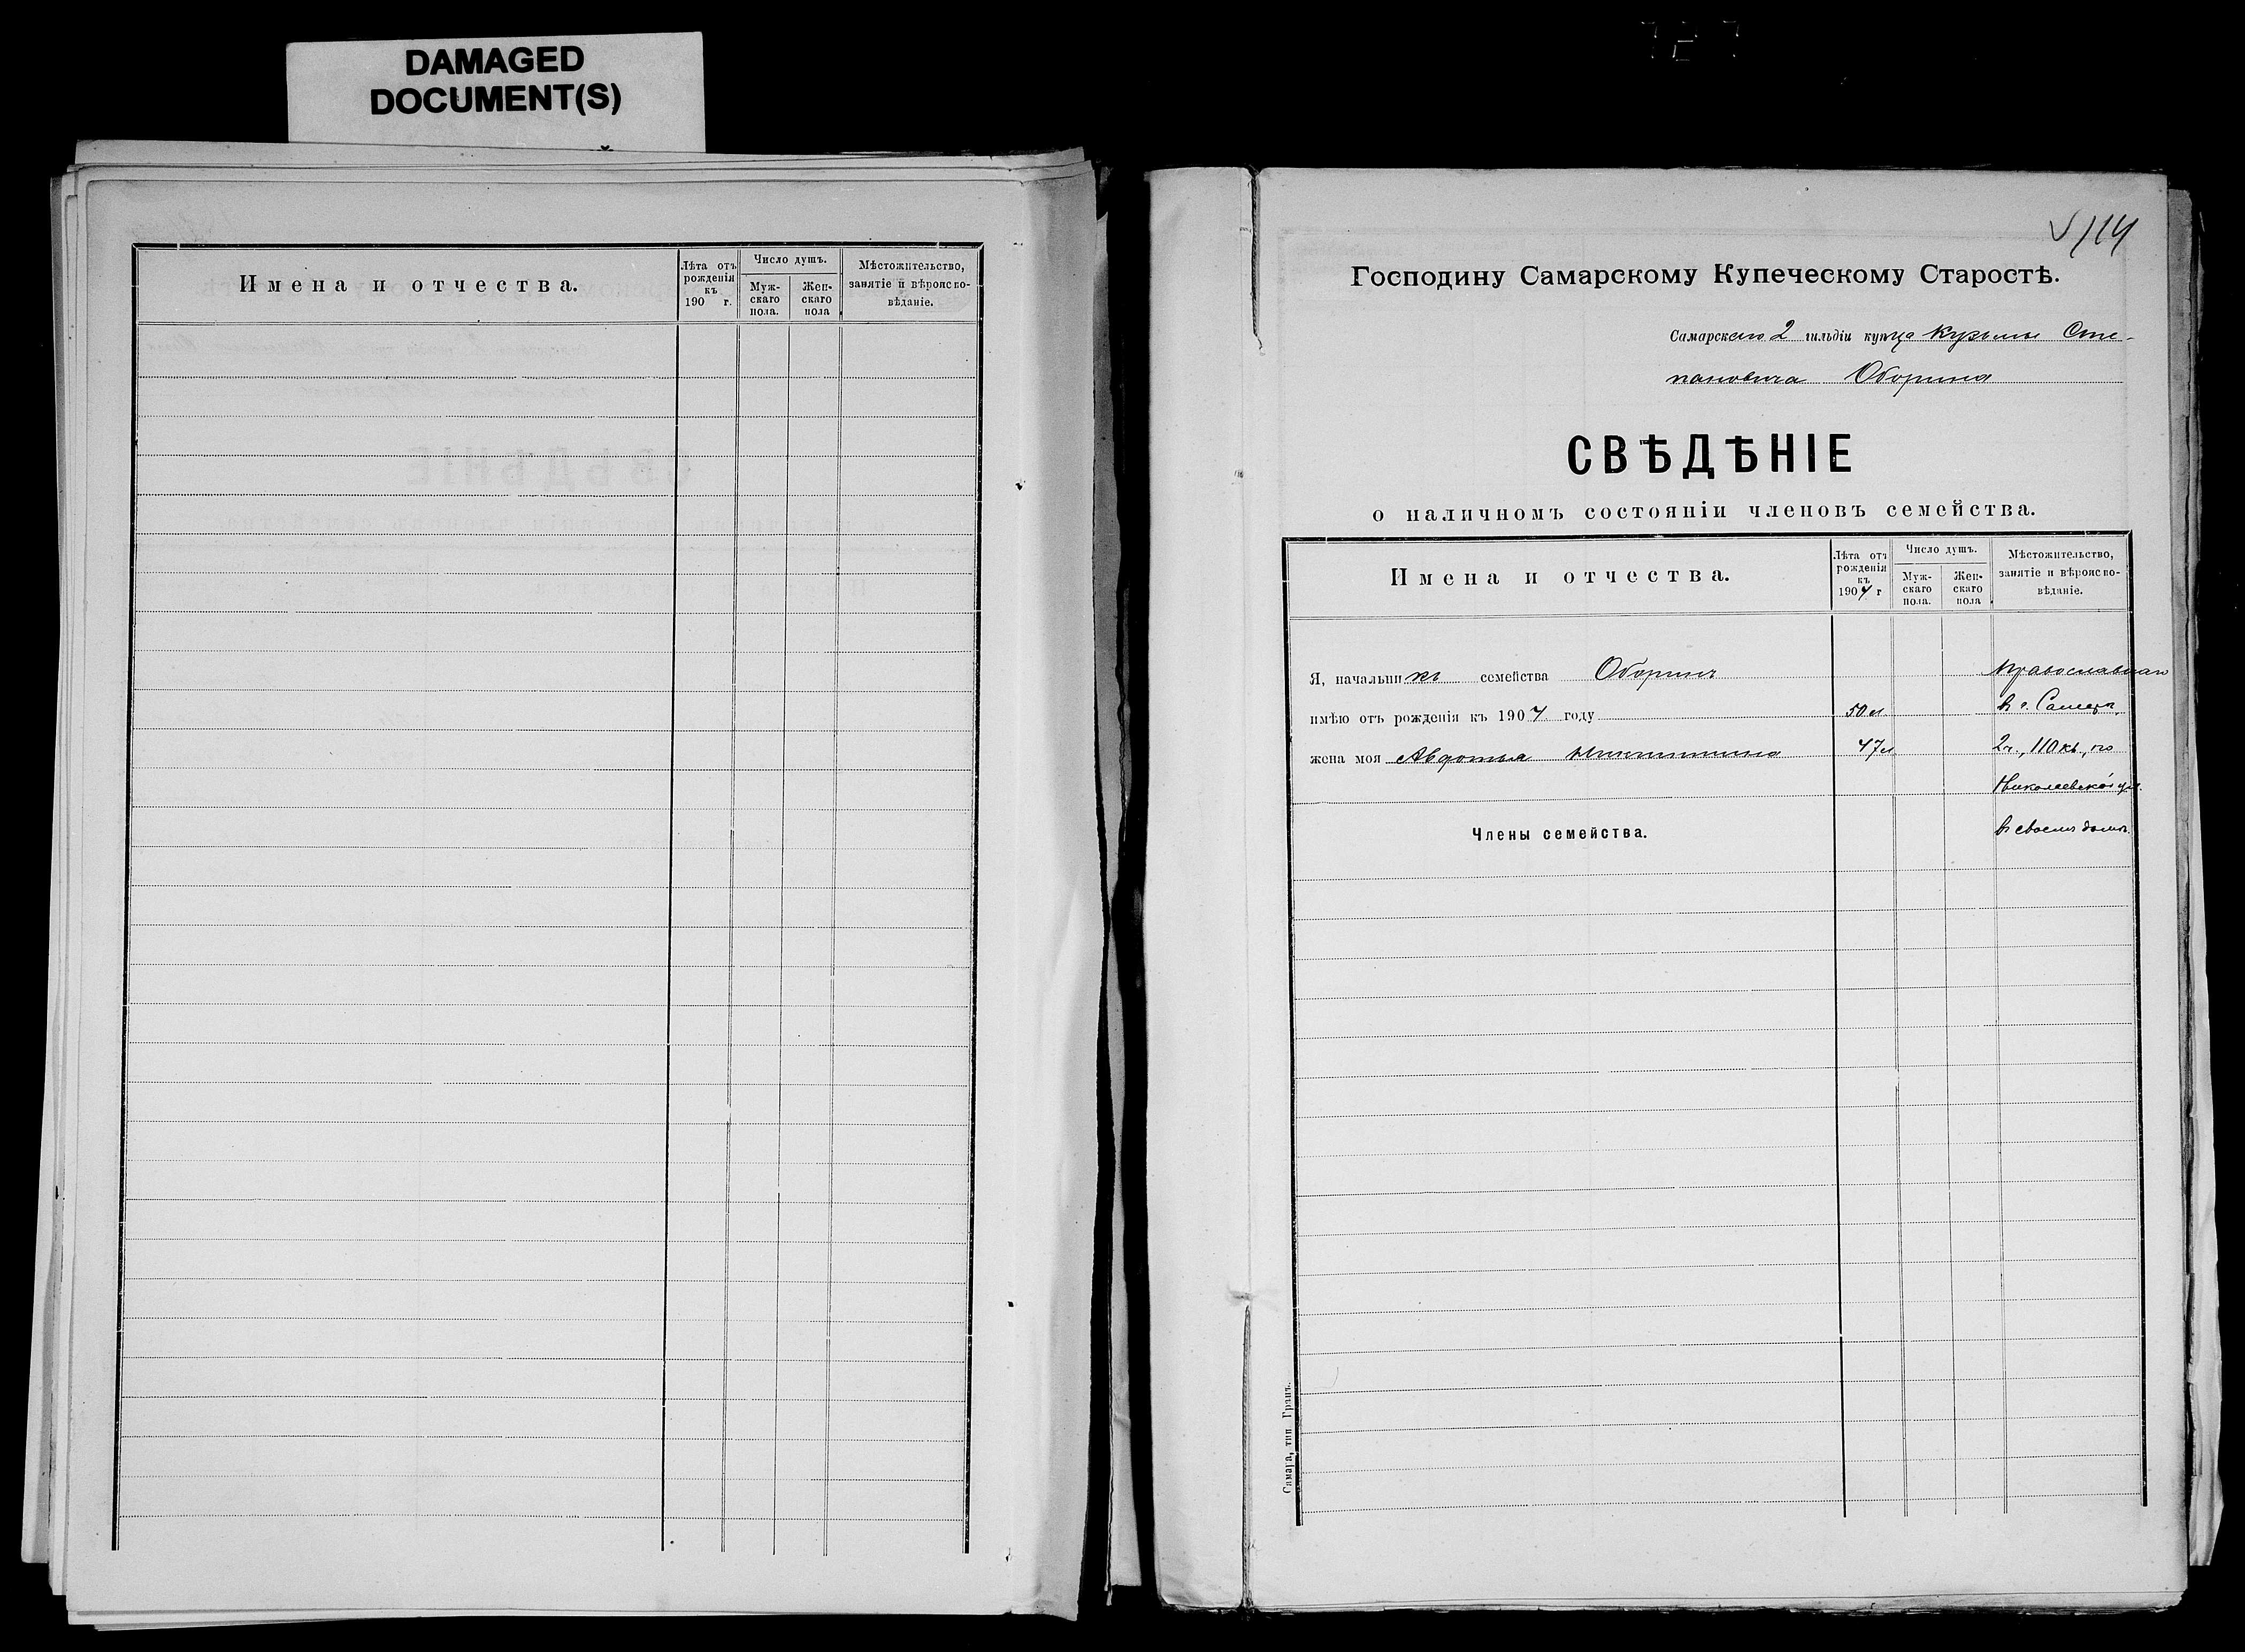 DAMAGED
DOCUMENT(S)
Имена и отчества.
Лѣта отъ
рожденія
къ
190 г.
Число душъ.
Муж-
скаго
пола.
Жен-
скаго
пола
Мѣстожительство,
занятіе и вѣроиспо-
вѣданіе.
114
Господину Самарскому Купеческому Старостѣ.
Самарскаго 2 гильдіи купца Кузьмы Сте-
пановича Оборина
СВѢДѢНІЕ
о наличномъ состояніи членовъ семейства.
Имена и отчества.
Лѣта отъ
рожденія
къ
1907 г
Число душъ.
Муж-
скаго
пола.
Жен-
скаго
пола
Мѣстожительство,
занятіе и вѣроиспо-
вѣданіе.
Я, начальникъ семейства Оборинъ Православнаго
имѣю отъ рожденія къ 1907 году 50 л в г. Самара,
жена моя Авдотья Никитична 47 л 2 ч., 110 кв, по
Николаевской ул.
Члены семейства. въ своемъ домѣ.
Самара, тип Гранъ.